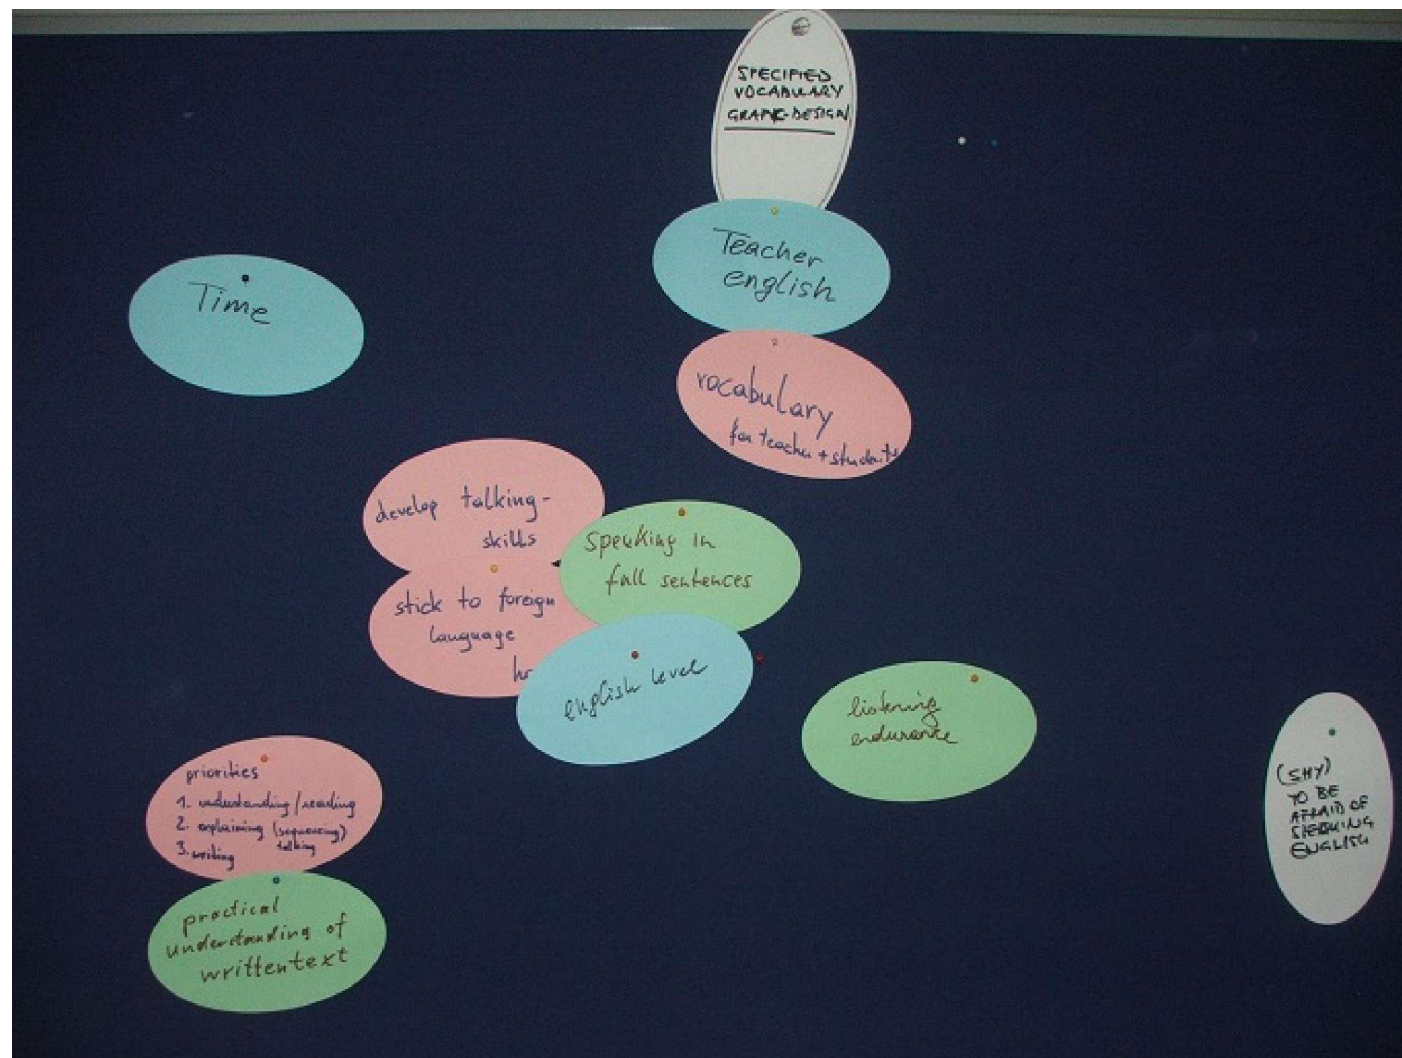 SPECIFIED
VOCABULARY
GRAFIC-DESIGN
Teacher
english
Time
vocabulary
for teacher + students
develop talking-
skills
stick to foreign
language
speaking in
full sentences
english level
listening
endurance
priorities
1. understanding/reading
2. explaining (sequencing)
talking
3. writing
practical
understanding of
writtentext
(SHY)
TO BE
AFRAID OF
SPEAKING
ENGLISH